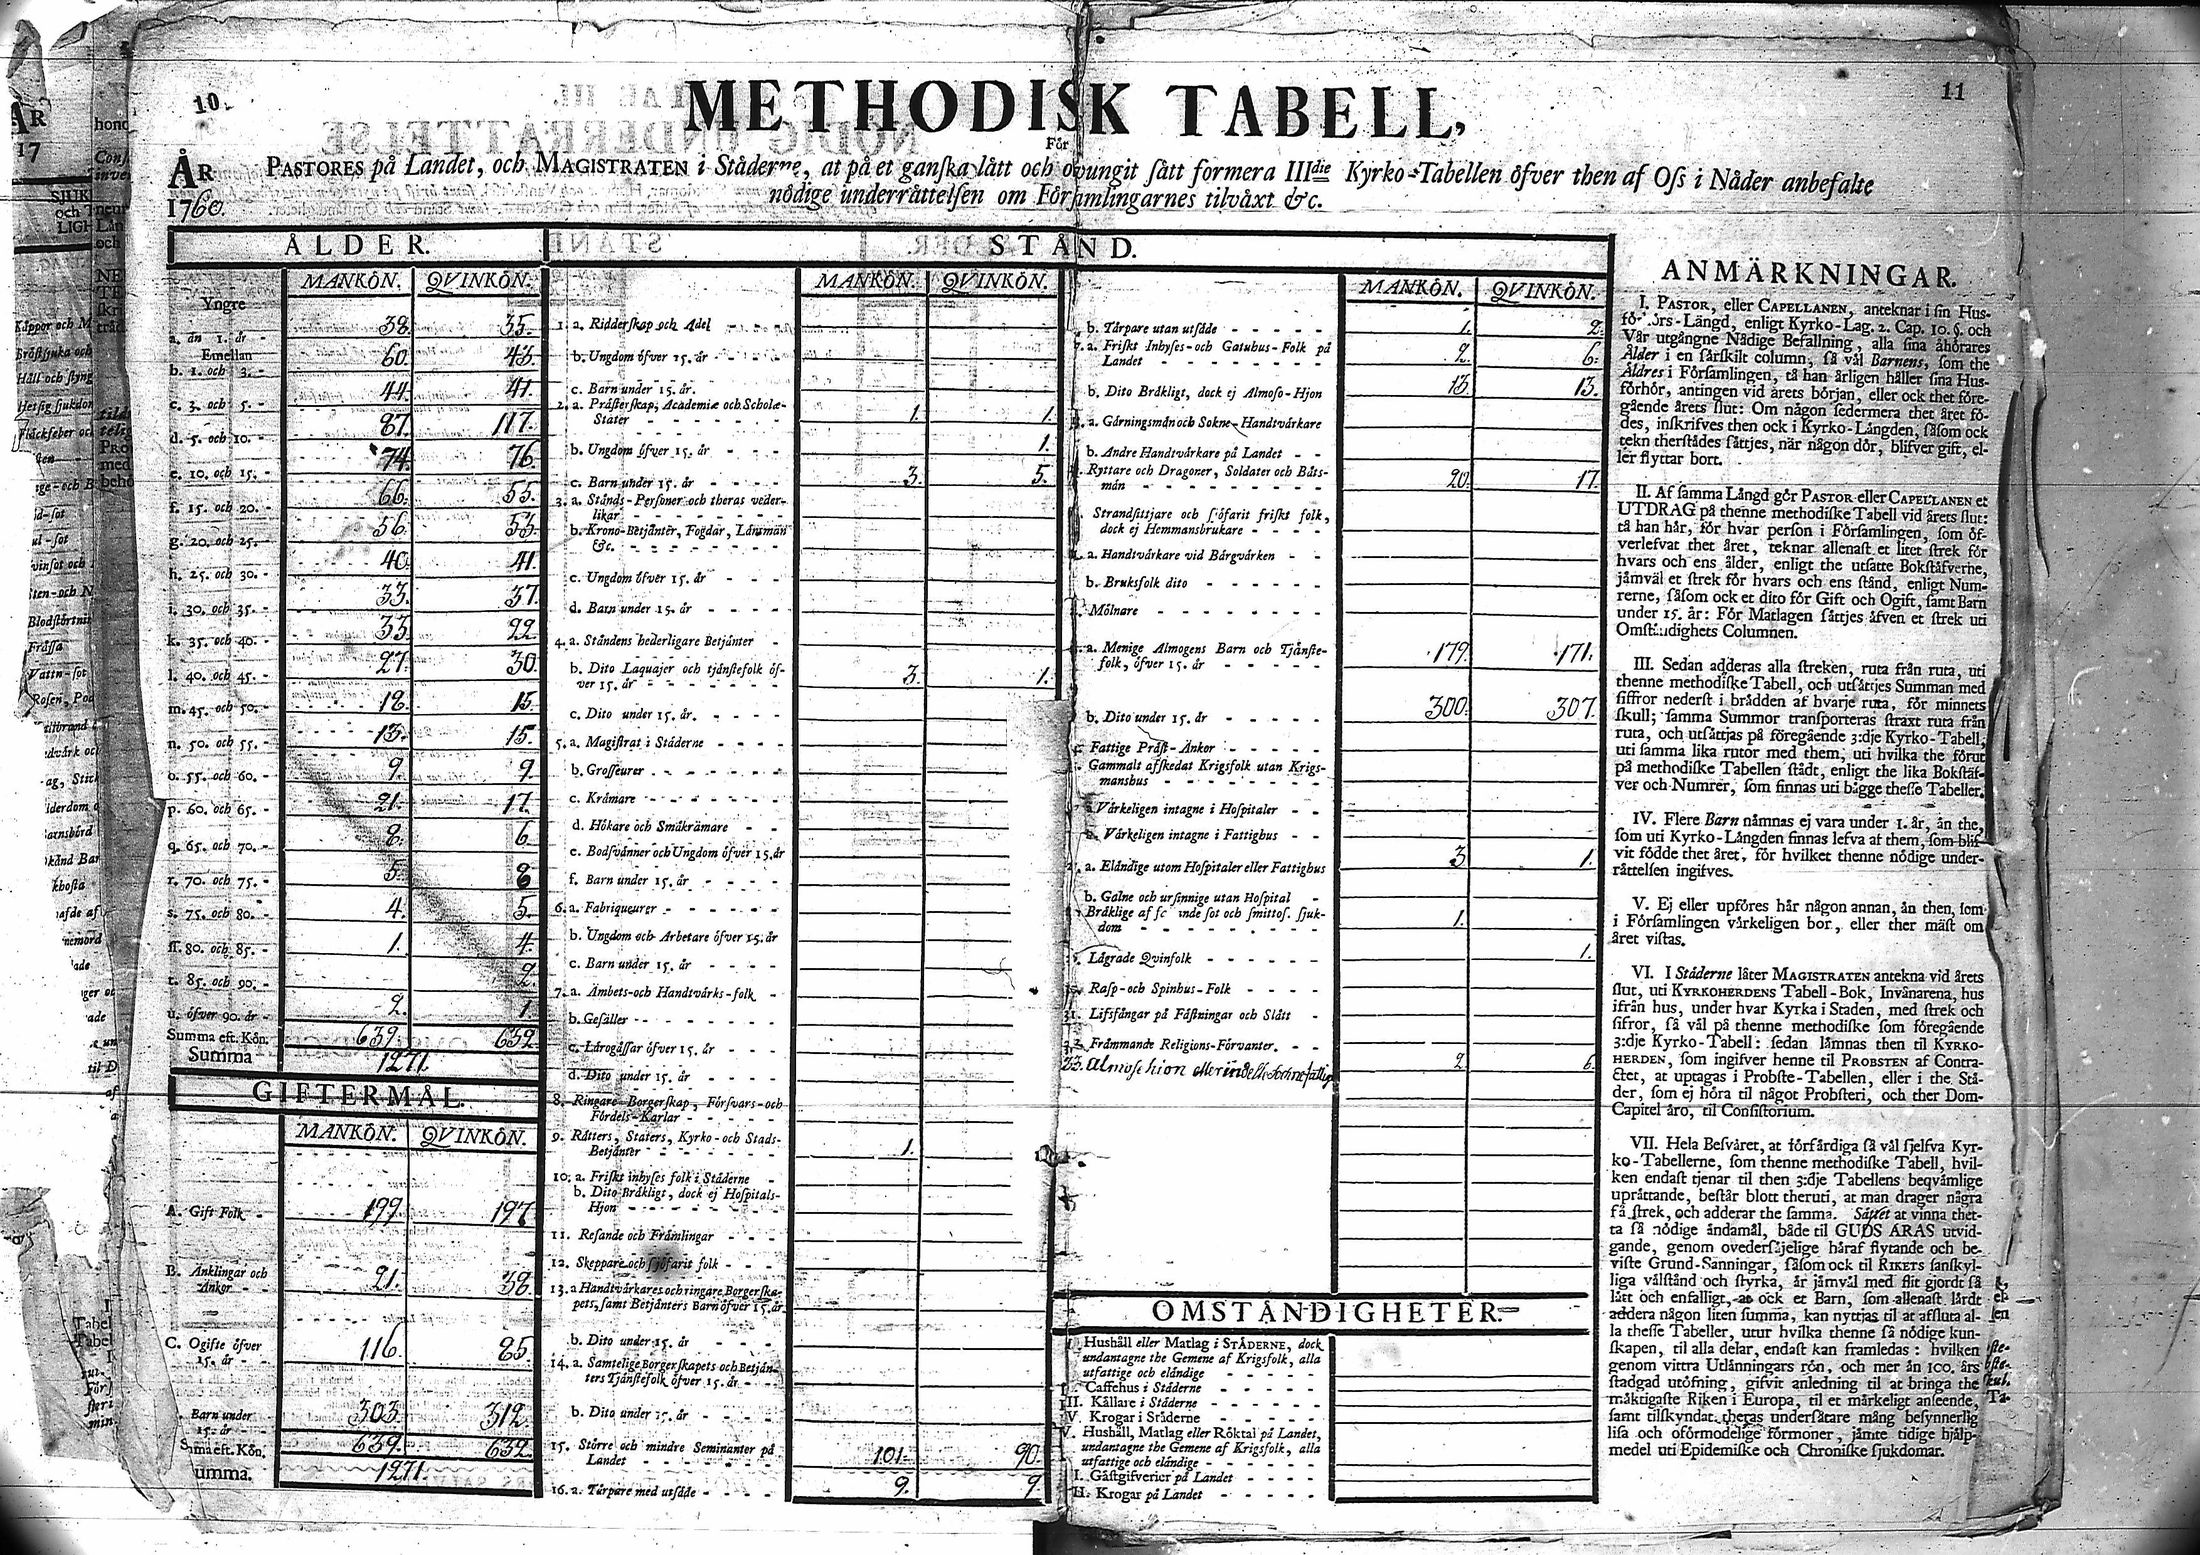 10.
11
METHODISK TABELL,
För
ÅR
1760.
PASTORES på Landet, och MAGISTRATEN i Ståderne, at på et ganska lått och otvungit sått formera IIIdie Kyrko-Tabellen öfver then af Oss i Nåder anbefalte
nödige underråttelsen om Församlingarnes tilvåxt &c.
ÅLDER.
MANKÖN. QVINKÖN.
Yngre
a. ån 1. år - 38. 35.
Emellan
b. 1. och 3. - 60. 43.
c. 3. och 5. - 44. 41.
d. 5. och 10. - 87. 117.
e. 10. och 15. - 74. 76.
f. 15. och 20. - 66. 55.
g. 20. och 25. - 56. 53.
h. 25. och 30. - 40. 41.
i. 30. och 35. - 33. 37.
k. 35. och 40. - 33. 22.
l. 40. och 45. - 27. 30.
m. 45. och 50. - 18. 15.
n. 50. och 55. - 13. 15.
o. 55. och 60. - 9. 9.
p. 60. och 65. - 21. 17.
q. 65. och 70. - 8. 6.
r. 70. och 75. - 5. 8
s. 75. och 80. - 4. 5.
ff. 80. och 85. - 1. 4.
t. 85. och 90. - 2.
u. öfver 90. år - 2. 1
Summa eft. Kön. 639. 632.
Summa 1271.
GIFTERMÅL.
MANKÖN. QVINKÖN.
A. Gift Folk - 199. 197.
B. Änklingar och
Änkor - 21. 38.
C. Ogifte öfver
15. år - 116. 85.
Barn under
15. år - 303. 312.
Summa eft. Kön. 639. 632.
umma. 1271.
STÅND.
MANKÖN. QVINKÖN.
1. a. Ridderskap och Adel
b. Ungdom öfver 15. år
c. Barn under 15. år.
2. a. Pråsterskap, Academiæ och Scholæ-
Stater 1. 1.
b. Ungdom öfver 15. år 1.
c. Barn under 15. år 3. 5.
3. a. Stånds-Personer och theras veder-
likar
b. Krono-Betjånter, Fogdar, Lånsmån
&c.
c. Ungdom öfver 15. år
d. Barn under 15. år
4. a. Ståndens hederligare Betjånter
b. Dito Laquajer och tjånstefolk öf-
ver 15. år 3. 1.
c. Dito under 15. år.
5. a. Magistrat i Ståderne
b. Grosseurer
c. Kråmare
d. Hökare och Småkråmare
e. Bodsvånner och Ungdom öfver 15. år
f. Barn under 15. år
6. a. Fabriqueurer
b. Ungdom och Arbetare öfver 15. år
c. Barn under 15. år
7. a. Åmbets-och Handtvårks-folk
b. Gesåller
c. Lårogåssar öfver 15. år
d. Dito under 15. år
8. Ringare Borgerskap, Försvars-och
Fördels-Karlar
9. Råtters, Staters, Kyrko-och Stads-
Betjånter 1.
10. a. Friskt inhyses folk i Ståderne
b. Dito Bråkligt, dock ej Hospitals-
Hjon
11. Resande och Fråmlingar
12. Skeppare och sjöfarit folk
13. a Handtvårkares och ringare Borgerska-
pets, samt Betjånters Barn öfver 15. år.
b. Dito under 15. år
14. a. Samtelige Borgerskapets och Betjån-
ters Tjånstefolk öfver 15. år
b. Dito under 15. år
15. Större och mindre Seminanter på
Landet 101. 90.
16. a. Tårpare med utsåde 9. 9.
MANKÖN. QVINKÖN.
b. Tårpare utan utsåde 1. 2.
7. a. Friskt Inhyses-och Gatuhus-Folk på
Landet 2. 6.
b. Dito Bråkligt, dock ej Almoso-Hjon 13. 13.
a. Gårningsmån och Sokne-Handtvårkare
b. Andre Handtvårkare på Landet
Ryttare och Dragoner, Soldater och Båts-
mån 20. 17.
Strandsittjare och sjöfarit friskt folk,
dock ej Hemmansbrukare
a. Handtvårkare vid Bårgvårken
b. Bruksfolk dito
Mölnare
a. Menige Almogens Barn och Tjånste-
folk, öfver 15. år 179. 171.
b. Dito under 15. år 300. 307.
Fattige Pråst-Änkor
Gammalt afskedat Krigsfolk utan Krigs-
manshus
Vårkeligen intagne i Hospitaler
Vårkeligen intagne i Fattighus
a. Elåndige utom Hospitaler eller Fattighus 3 1.
b. Galne och ursinnige utan Hospital
Bråklige af fc nde sot och smittos. sjuk-
dom 1.
Lågrade Qvinfolk 1.
Rasp-och Spinhus-Folk
Lifsfångar på Fåstningar och Slått
Fråmmande Religions-Förvanter.
33. Almose hion 2. 6.
OMSTÅNDIGHETER.
Hushåll eller Matlag i STÅDERNE, dock
undantagne the Gemene af Krigsfolk, alla
utfattige och elåndige
Caffehus i Ståderne
II. Kållare i Ståderne
V. Krogar i Ståderne
V. Hushåll, Matlag eller Röktal på Landet,
undantagne the Gemene af Krigsfolk, alla
utfattige och elåndige
I. Gåstgifverier på Landet
II. Krogar på Landet
ANMÄRKNINGAR.
I. PASTOR, eller CAPELLANEN, anteknar i sin Hus-
förhörs-Långd, enligt Kyrko-Lag. 2. Cap. 10. §. och
Vår utgångne Nådige Befallning, alla sina åhörares
Ålder i en sårskilt column, så vål Barnens, som the
Åldres i Församlingen, tå han årligen håller sina Hus-
förhör, antingen vid årets början, eller ock thet före-
gående årets slut: Om någon sedermera thet året fö-
des, inskrifves then ock i Kyrko-Långden, såsom ock
tekn therstådes såttjes, når någon dör, blifver gift, el-
ler flyttar bort.
II. Af samma Långd gör PASTOR eller CAPELLANEN et
UTDRAG på thenne methodiske Tabell vid årets slut:
tå han hår, för hvar person i Församlingen, som öf-
verlefvat thet året, teknar allenast et litet strek för
hvars och ens ålder, enligt the utsatte Bokståfverne,
jåmvål et strek för hvars och ens stånd, enligt Num-
rerne, såsom ock et dito för Gift och Ogift, samt Barn
under 15. år: För Matlagen såttjes åfven et strek uti
Omståndighets Columnen.
III. Sedan adderas alla streken, ruta från ruta, uti
thenne methodiske Tabell, och utsåttjes Summan med
siffror nederst i brådden af hvarje ruta, för minnets
skull; samma Summor transporteras straxt ruta från
ruta, och utsåttjas på föregående 3:dje Kyrko-Tabell,
uti samma lika rutor med them, uti hvilka the förut
på methodiske Tabellen stådt, enligt the lika Bokståf-
ver och Numrer, som finnas uti bågge thesse Tabeller.
IV. Flere Barn nåmnas ej vara under 1. år, ån the,
som uti Kyrko-Långden finnas lefva af them, som blif-
vit födde thet året, för hvilket thenne nödige under-
råttelsen ingifves.
V. Ej eller upföres hår någon annan, ån then, som
i Församlingen vårkeligen bor, eller ther måst om
året vistas.
VI. I Ståderne låter MAGISTRATEN antekna vid årets
slut, uti KYRKOHERDENS Tabell-Bok, Invånarena, hus
ifrån hus, under hvar Kyrka i Staden, med strek och
sifror, så vål på thenne methodiske som föregående
3:dje Kyrko-Tabell: sedan låmnas then til KYRKO-
HERDEN, som ingifver henne til PROBSTEN af Contra-
ctet, at uptagas i Probste-Tabellen, eller i the Stå-
der, som ej höra til något Probsteri, och ther Dom-
Capitel åro, til Consistorium.
VII. Hela Besvåret, at förfårdiga så vål sjelfva Kyr-
ko-Tabellerne, som thenne methodiske Tabell, hvil-
ken endast tjenar til then 3:dje Tabellens beqvåmlige
upråttande, beståir blott theruti, at man drager några
få strek, och adderar the samma. Såttet at vinna thet-
ta så nödige åndamål, både til GUDS ÅRAS utvid-
gande, genom ovedersåjelige håraf flytande och be-
viste Grund-Sanningar, såsom ock til RIKETS sanskyl-
liga vålstånd och styrka, år jåmvål med flit gjordt så
lått och enfalligt, at ock et Barn, som allenast lårdt
addera någon liten summa, kan nyttjas til at afsluta al-
la thesse Tabeller, utur hvilka thenne så nödige kun-
skapen, til alla delar, endast kan framledas: hvilken
genom vittra Utlånningars rön, och mer ån 100. års
stadgad utöfning, gifvit anledning til at bringa the
måktigaste Riken i Europa, til et mårkeligt anseende,
samt tilskyndat theras undersåtare mång besynnerlig
lisa och oförmodelige förmoner, jåmte tidige hjålp-
medel uti Epidemiske och Chroniske sjukdomar.